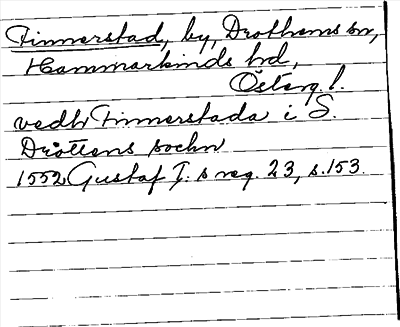 Finnerstad, by, Drothems sn,
Hammarkinds hd,
Österg. l.
vedh Finnerstada i S.
Dråttens sochn
1552 Gustaf I. s reg. 23, s. 153.